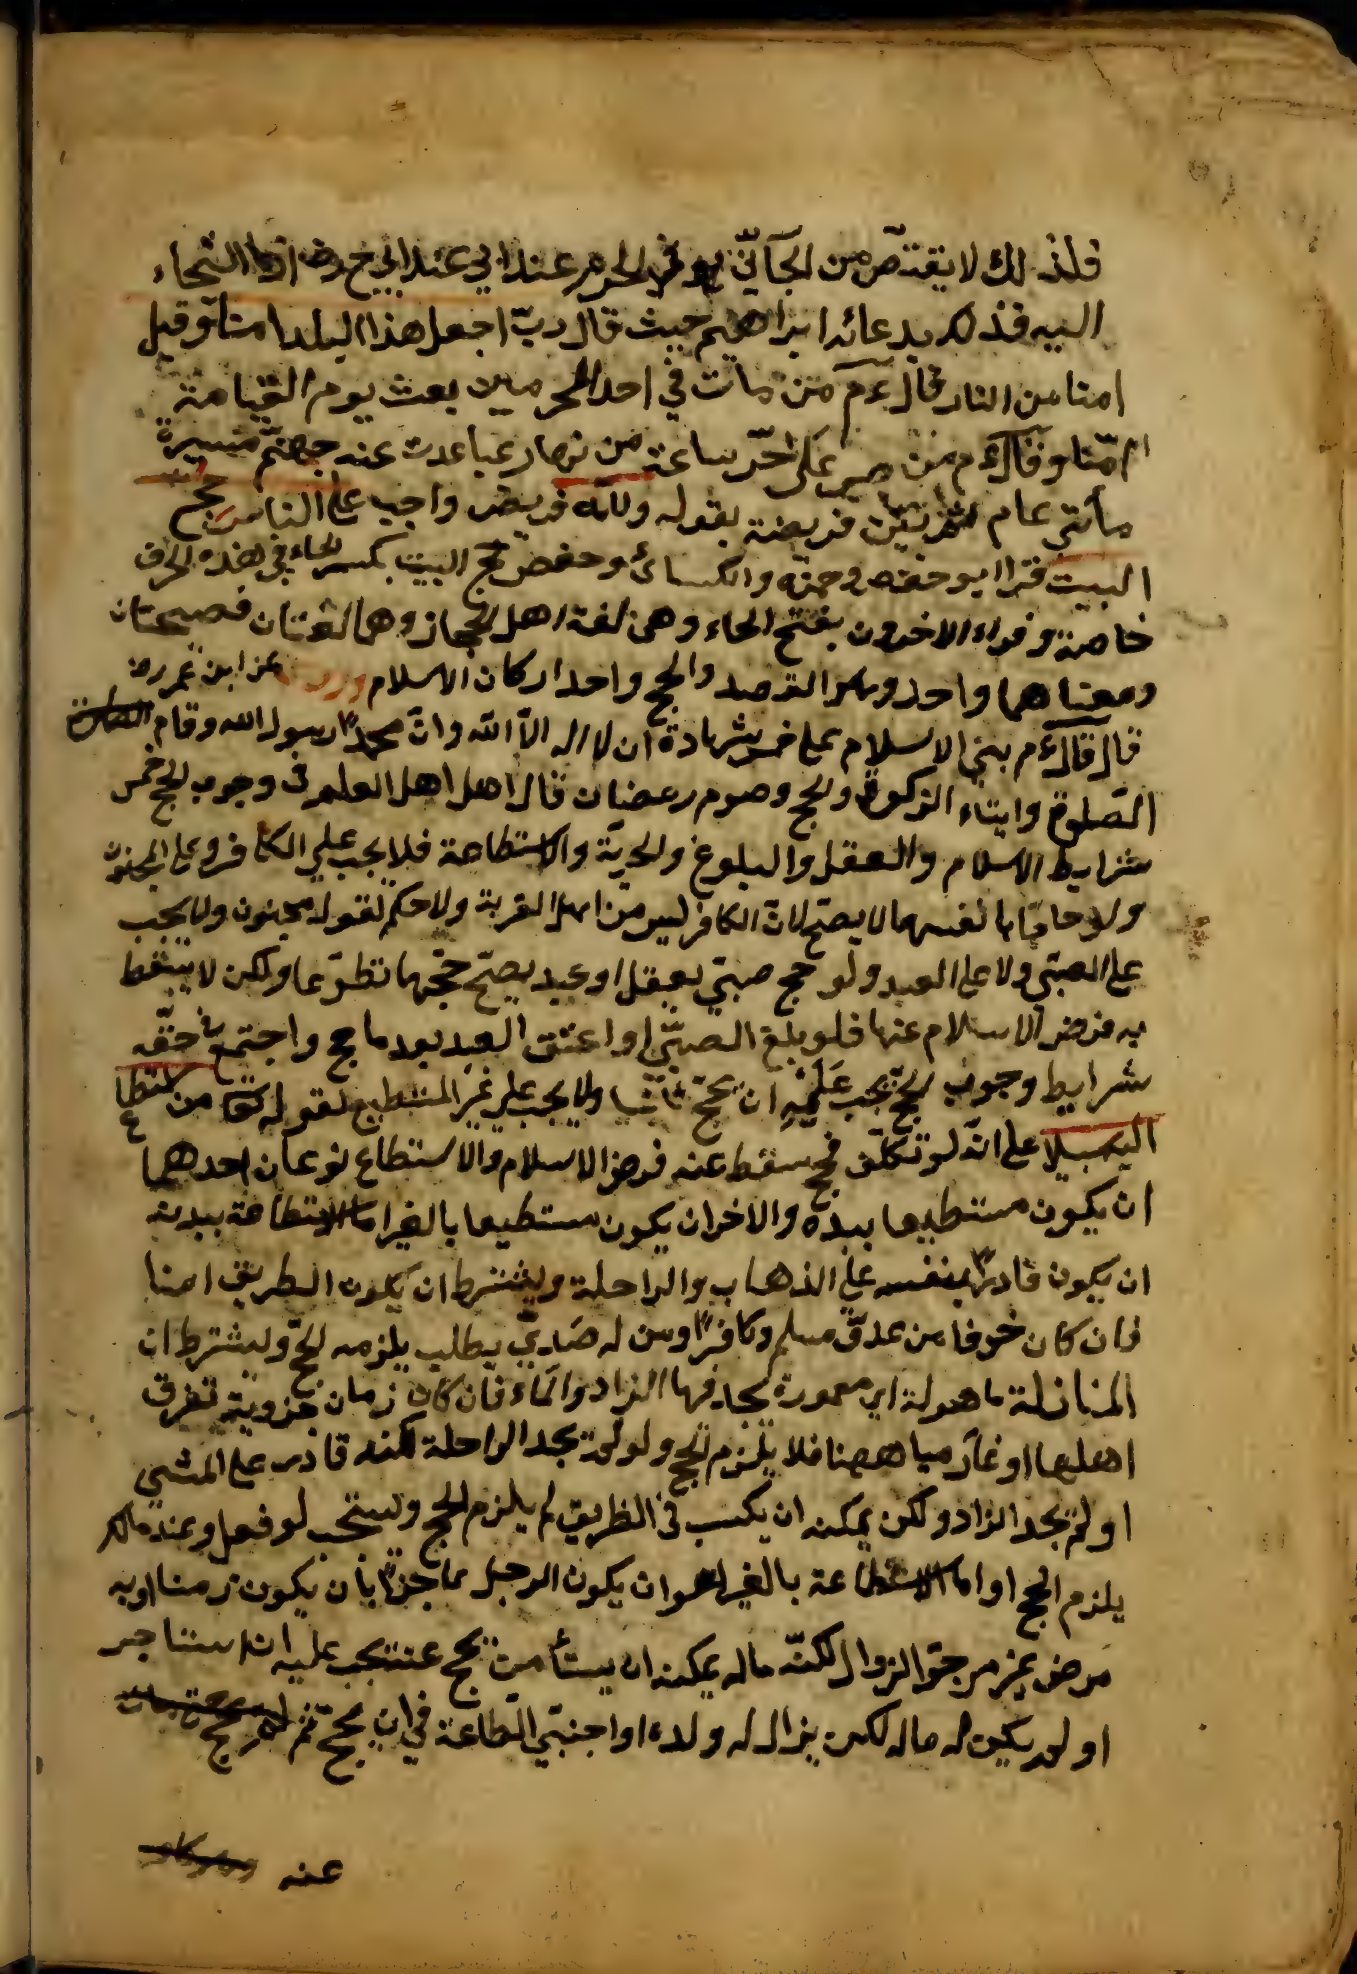 فلذلك لا يقتص من الجاني في الحرم عند ابي عند ابي ح رض اذا التجاء
اليه فذلك بدعائه ابراهيم حيث قال رب اجعل هذا البلد امنا وقيل
امنا من النار قال عم من مات في احد الحرمين بعث يوم القيامة
امنا وقال عم من صبر على حر ساعة من نهار تباعدت عنه جهنم مسيرة
مأتى عام ثم بين فريضة بقوله ولله فريض واجب على الناس حج
البيت قرا ابو حفص وحمزه والكسائ وحفص حج البيت بكسر الحاء في هذه الحرف
خاصة وقراء الاخرون بفتح الحاء وهى لغة اهل الحجاز وهما لغتان فصيحتان
ومعناهما واحد وهو القصد والحج واحد اركان الاسلام عن ابن عمر رض
قال قال عم بنى الاسلام على خمس شهادة ان لا اله الا الله وان محمدا رسول الله وقام
الصلوة وايتاء الزكوة والحج وصوم رمضان قال اهل اهل العلم فى وجوب الحج خمس
شرايط الاسلام والعقل والبلوغ والحرية والاستطاعة فلا يجب على الكافر وعلى المجنون
ولو حاجا بانفسهما لا يصح لان الكافر ليس من اهل القربة ولا حكم لقول مجنون ولا يجب
على الصبى ولا على العبد ولو حج صبي يعقل او عبد يصح حجهما تطوعا ولكن لا يسقط
به فرض الاسلام عنها فلو بلغ الصبي او اعتق العبد بعد ما حج واجتمع في حقه
شرايط وجوب الحج يجب عليه ان يحج ثانيا ولا يجب على غير المستطيع لقوله تعا من استطاع
اليه سبيلا على انه لو تكلف فحج سقط عنه فرض الاسلام والاستطاع نوعان احدهما
ان يكون مستطيعا ببدنه والاخر ان يكون مستطيعا بالغير اما الاستطاعة ببدنه
ان يكون قادرا بنفسه على الذهاب والراحلة ويشترط ان يكون الطريق امنا
فان كان خوفا من عدو مسلم وكافرا ومن له يطلب يلزمه الحج ويشترط ان
المنازلة ماهولة اي معمورة يجد فيها الزاد والماء فان كان زمان تفرق
اهلها او غار مياهها فلا يلزم الحج ولو لم يجد الراحلة لكنه قادر على المشى
او لم يجد الزاد ولكن يمكنه ان يكسب فى الطريق لم يلزم الحج ويستحب لو فعل وعند مالك
يلزم الحج او اما الاستطاعة بالغير هو ان يكون الرجل عاجزا بان يكون زمنا او به
مرض غير مرجو الزوال لكنه ماله يمكنه ان يستأ من يحج عنه يجب عليه ان استناجر
او لم يكن له مال لكن بذال له ولده او اجنبي الطاعة في ان يحج ثم
عنه